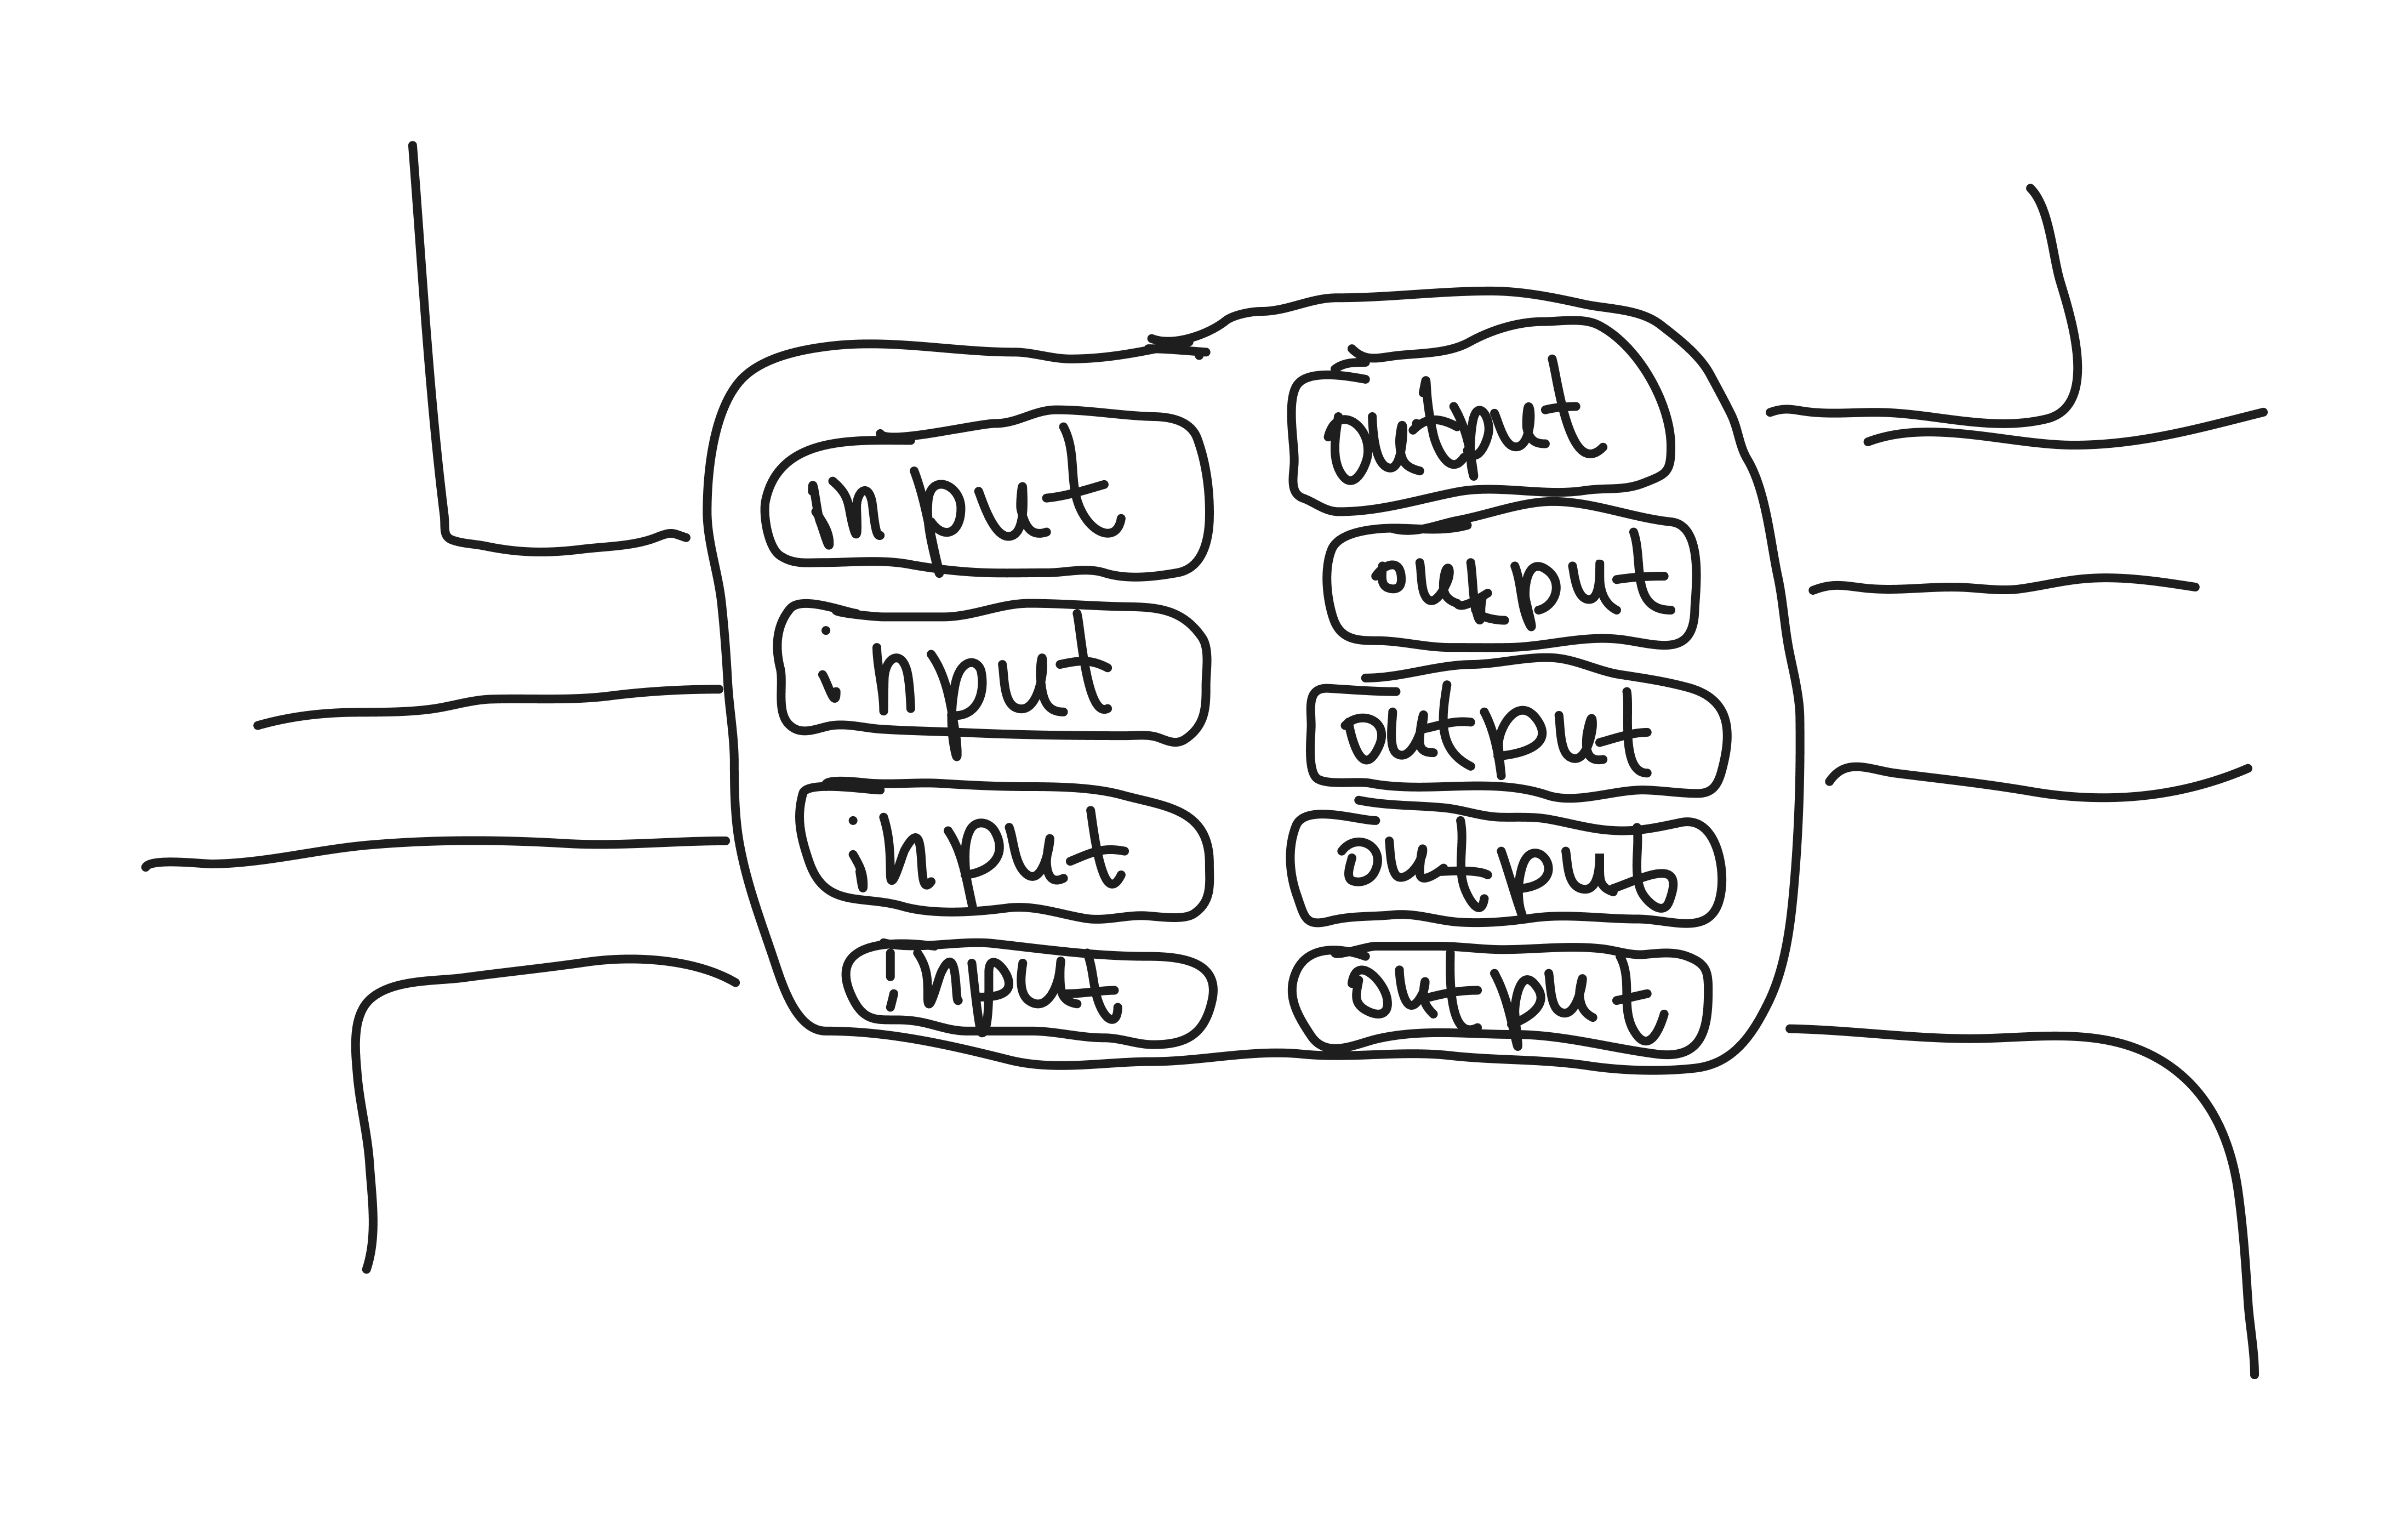 input
input
input
input
output
output
output
output
output